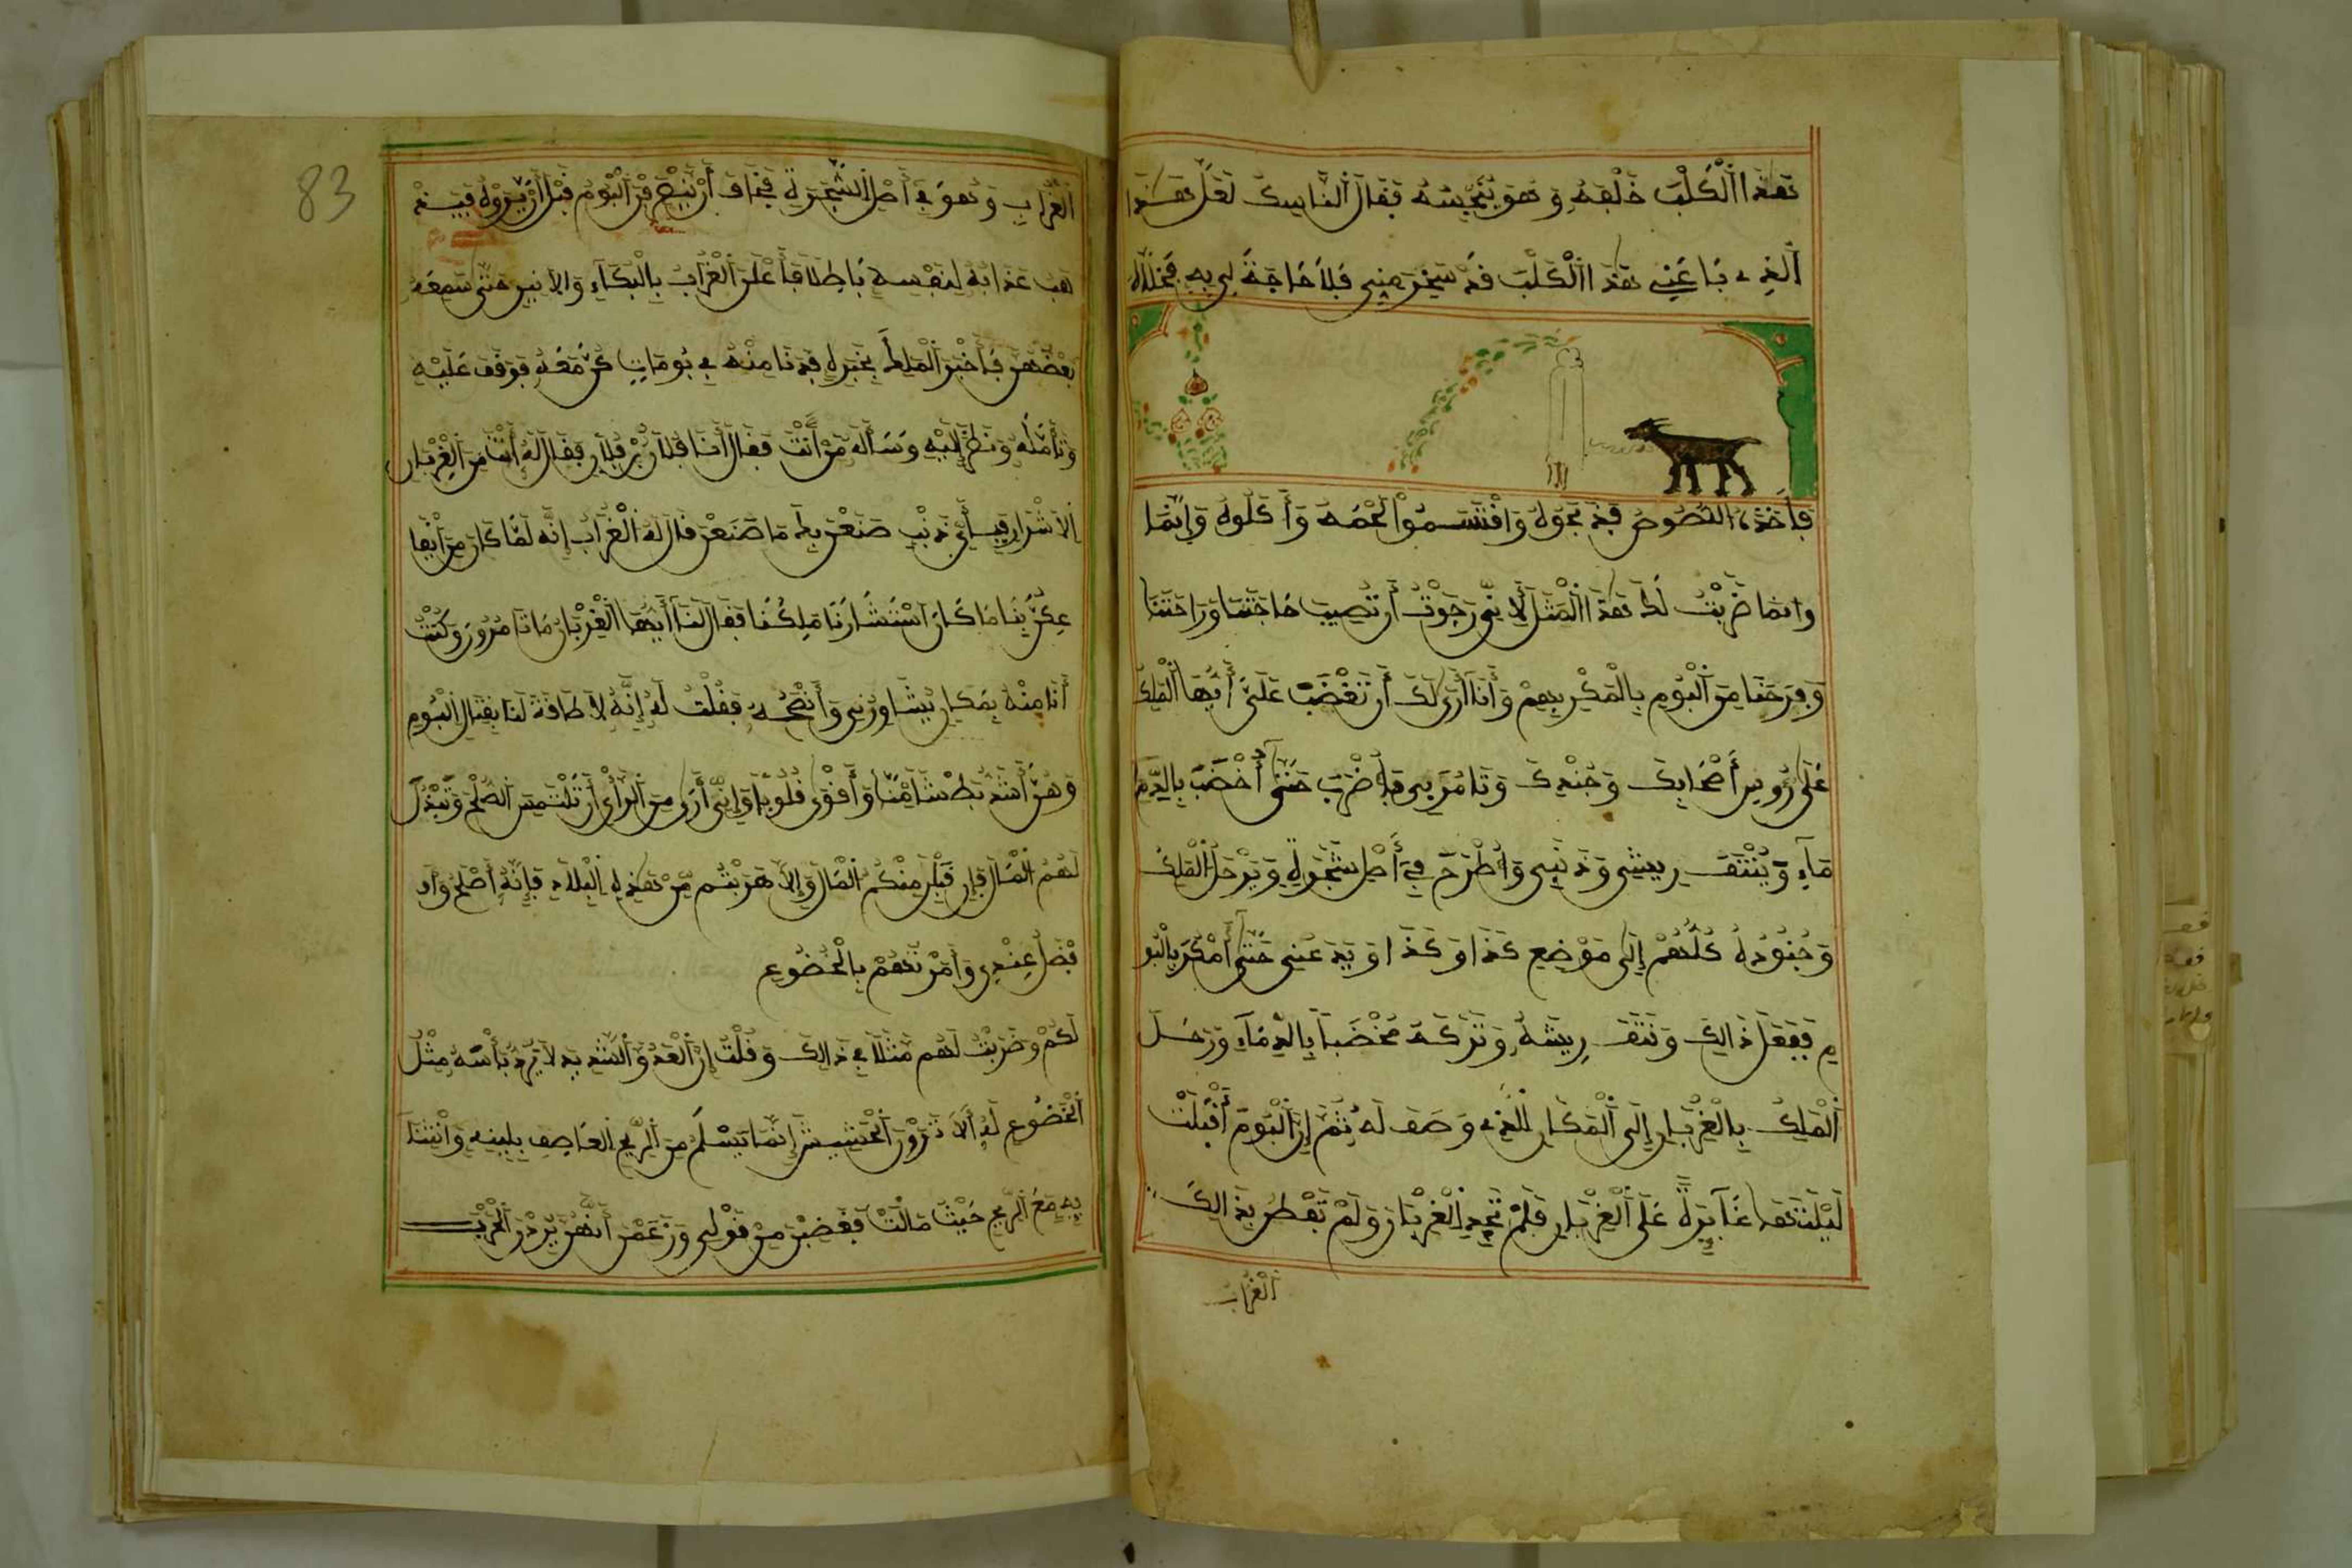 هَذَا الْكَلْبَ خَلْفَهُ وَهُوَ يَتَجَسَّسُهُ فَقَالَ النَّاسِكُ لَعَلَّ هَذَا
الَّذِي بَاعَنِي هَذَا الْكَلْبَ قَدْ سَخِرَ مِنِّي فَلَا حَاجَةَ لِي بِهِ فَخَلَّاهُ
فَأَخَذَهُ اللُّصُوصُ فَذَبَحُوهُ وَاقْتَسَمُوا لَحْمَهُ وَأَكَلُوهُ وَإِنَّمَا
وَإِنَّمَا ضَرَبْتُ لَكَ هَذَا الْمَثَلَ لِأَنِّي رَجَوْتُ أَنْ نُصِيبَ حَاجَتَنَا وَرَاحَتَنَا
وَفَرَحَنَا مِنَ الْبُومِ بِالْمَكْرِ بِهِمْ وَأَنَا أَرَى لَكَ أَنْ تَغْضَبَ عَلَيَّ أَيُّهَا الْمَلِكُ
عَلَى رُءُوسِ أَصْحَابِكَ وَجُنْدِكَ وَتَأْمُرَ بِي فَأُضْرَبَ حَتَّى أُخْضَبَ بِالدِّمَا
مَاءِ وَيُنْتَفَ رِيشِي وَذَنَبِي وَأُطْرَحَ فِي أَصْلِ شَجَرَةٍ وَيَرْحَلُ الْمَلِكُ
وَجُنُودُهُ كُلُّهُمْ إِلَى مَوْضِعِ كَذَا وَكَذَا وَيَدَعُنِي حَتَّى أَمْكُرَ بِالْبُو
مِ فَفَعَلَ ذَالِكَ وَنَتَفَ رِيشَهُ وَتَرَكَهُ مُخْضَبًا بِالدِّمَاءِ وَرَحَلَ
الْمَلِكُ بِالْغِرْبَانِ إِلَى الْمَكَانِ الَّذِي وَصَفَ لَهُ ثُمَّ إِنَّ الْبُومَ أَقْبَلَتْ
لَيْلَتَهَا غَايِرَةً عَلَى الْغِرْبَانِ فَلَمْ تَجِدِ الْغِرْبَانَ وَلَمْ تَفْطُنْ بِذَالِكَ
الْغُرَابِ
83
الْغُرَابِ وَهُوَ فِي أَصْلِ الشَّجَرَةِ فَخَافَ أَنْ تَبْرَحَ مِنَ الْبُومُ قَبْلَ أَنْ يَرَوْهُ فَيَذْ
هَبَ عَذَابُهُ لِنَفْسِهِ بَاطِلًا فَأَعْلَنَ الْغُرَابُ بِالْبُكَاءِ وَالْأَنِينِ حَتَّى سَمِعَهُ
بَعْضُهُنَّ فَأَخْبَرَ الْمَلِكَ بِخَبَرِهِ فَدَنَا مِنْهُ فِي بُومَاتٍ كُنَّ مَعَهُ فَوَقَفَ عَلَيْهِ
وَتَأَمَّلَهُ وَنَظَرَ إِلَيْهِ وَسَأَلَهُ مَنْ أَنْتَ فَقَالَ أَنَا فُلَانُ بْنُ فُلَانٍ فَقَالَ لَهُ أَنْتَ مِنَ الْغِرْبَانِ
الْأَشْرَارِ فَبِأَيِّ ذَنْبٍ صَنَعْنَ بِكَ مَا صَنَعْنَ قَالَ لَهُ الْغُرَابُ إِنَّهُ لَمَّا كَانَ مِنْ إِيقَا
عِكُنَّ بِنَا مَا كَانَ اسْتَشَارَنَا مَلِكُنَا فَقَالَ لَنَا أَيُّهَا الْغِرْبَانُ مَا تَأْمُرُونَ وَكُنْتُ
أَنَا مِنْهُ بِمَكَانٍ يُشَاوِرُنِي وَأَنْصَحُهُ فَقُلْتُ لَهُ إِنَّهُ لَا طَاقَةَ لَنَا بِقِتَالِ الْبُومِ
وَهُنَّ أَشَدُّ بَطْشًا مِنَّا وَأَقْوَى قُلُوبًا وَإِنِّي أَرَى مِنَ الرَّأْيِ أَنْ نَلْتَمِسَ الصُّلْحَ وَنَبْذُلَ
لَهُمُ الْمَالَ فَإِنْ قَبِلْنَ مِنْكُمُ الْمَالَ وَإِلَّا هَرَبْتُمْ مِنْ هَذِهِ الْبِلَادِ فَإِنَّهُ أَصْلَحُ وَأَ
فْضَلُ عِنْدِي وَأَمَرْتُهُمْ بِالْخُضُوعِ
لَكُمْ وَضَرَبْتُ لَهُمْ مَثَلًا فِي ذَالِكَ وَقُلْتُ إِنَّ الْعَدُوَّ الشَّدِيدَ لَا يَرُدُّ بَأْسَهُ مِثْلُ
الْخُضُوعِ لَهُ أَلَا تَرَوْنَ الْحَشِيشَ إِنَّمَا يَسْلَمُ مِنَ الرِّيحِ الْعَاصِفِ بِلِينِهِ وَانْثِنَا
بِهِ مَعَ الرِّيحِ حَيْثُ مَالَتْ فَغَضِبْنَ مِنْ قَوْلِي وَزَعَمْنَ أَنَّهُنَّ يُرِدْنَ الْحَرْبَ